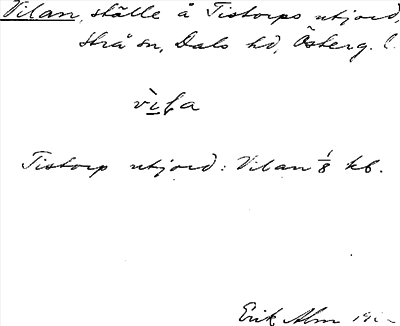 Vilan, ställe å Tistorps utjord,
Strå sn, Dals hd, Österg. l.
Tistorp utjord: Vilan 1/8 kb.
Erik Alm